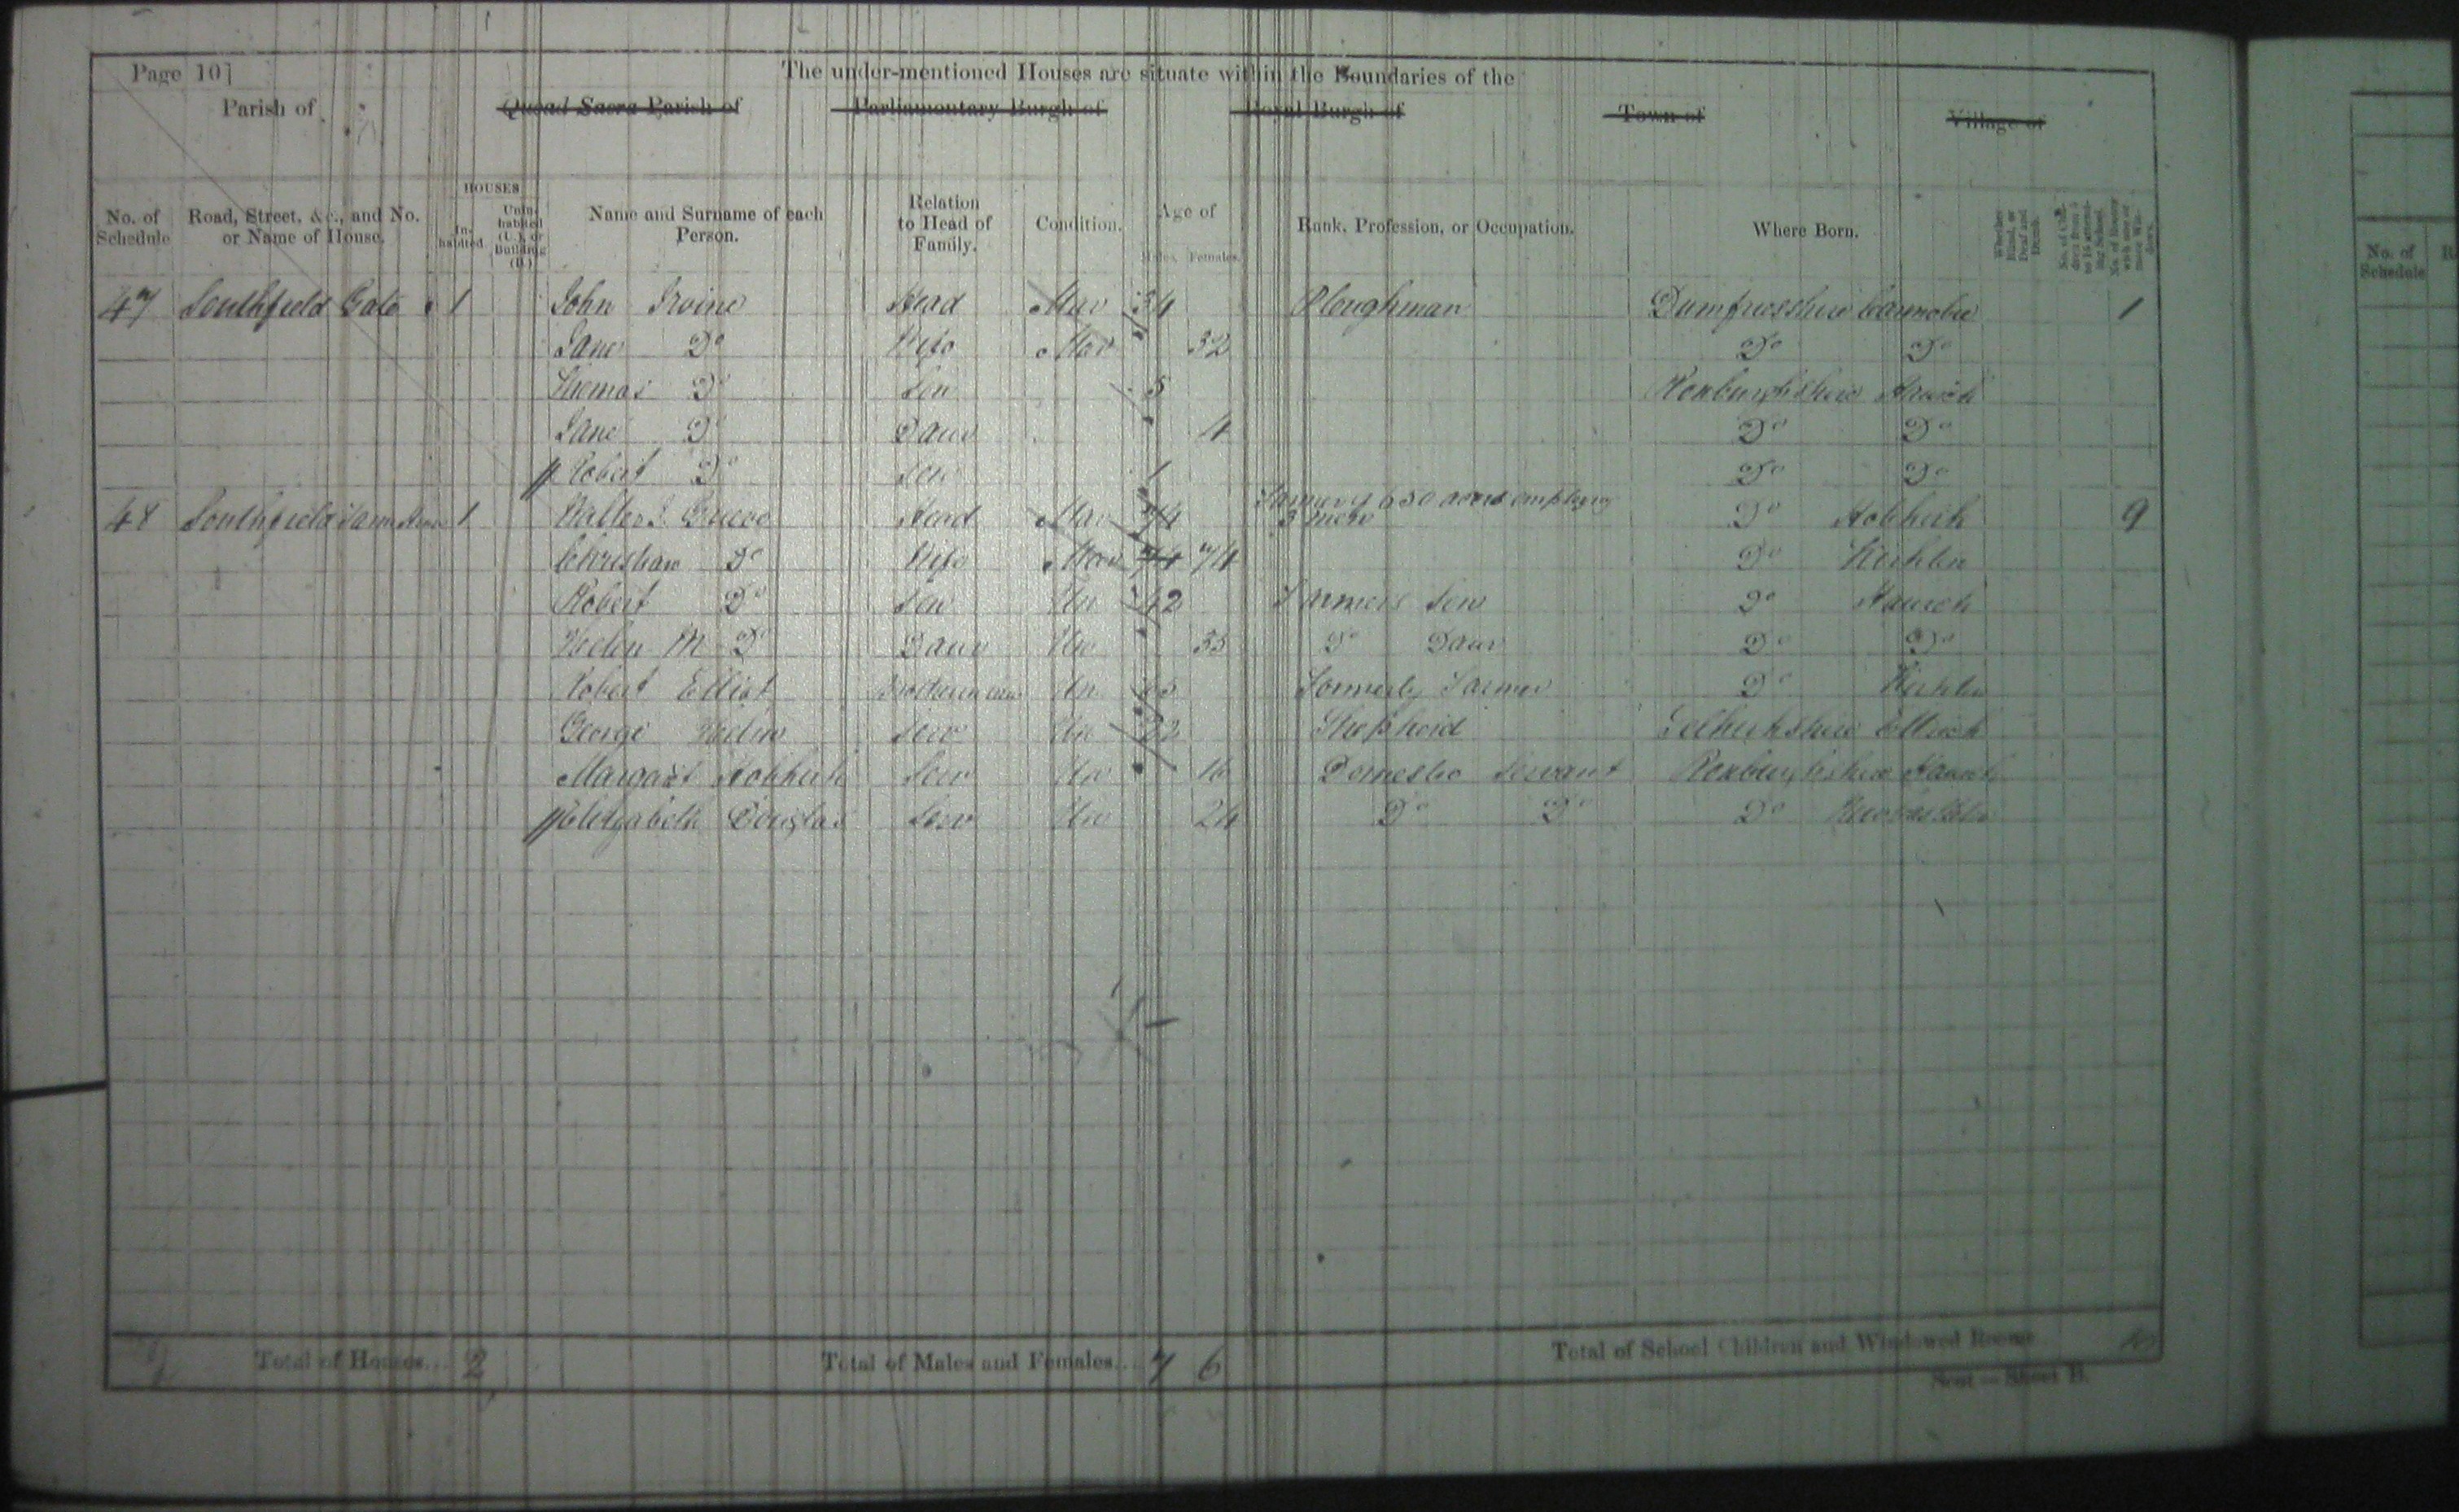 Page 10]
The under-mentioned Houses are situate within the Boundaries of the
Parish of Quoad Sacra Parish of Parliamentary Burgh of Royal Burgh of Town of Village of
No. of Schedule Road, Street, &c., and No. or Name of House. HOUSES Inhabited Uninhabited (U.), or Building (B.) Name and Surname of each Person. Relation to Head of Family. Condition. Age of Males Females Rank, Profession, or Occupation. Where Born. Whether Blind, or Deaf and Dumb. No. of Children from 5 to 15 attending School. No. of Rooms with one or more Windows.
No. of Schedule
47 Southfield Gate 1 John Irvine Head Mar 34 Ploughman Dumfriesshire Cannobie 1
Jane Do Wife Mar 32 Do Do
Thomas Do Son 5 Roxburghshire Hawick
Jane Do Daur 4 Do Do
Robert Do Son 1 Do Do
48 Southfield Farm House 1 Walter Grieve Head Mar 74 Farmer of 650 acres employing 3 men Do Hobkirk 9
Christian Do Wife Mar 74 74 Do Kirkton
Robert Do Son Un 42 Farmers Son Do Hawick
Helen M Do Daur Un 33 Do Daur Do Do
Robert Elliot Brother in law Un Formerly Farmer Do Kirkton
George Serv Un 22 Shepherd Selkirkshire Ettrick
Margaret Hobkirk Serv Un 16 Domestic Servant Roxburghshire
Elizabeth Douglas Serv Un 24 Do Do Do
Total of Houses... 2 Total of Males and Females... 7 6 Total of School Children and Windowed Rooms 10
Scot—Sheet B.